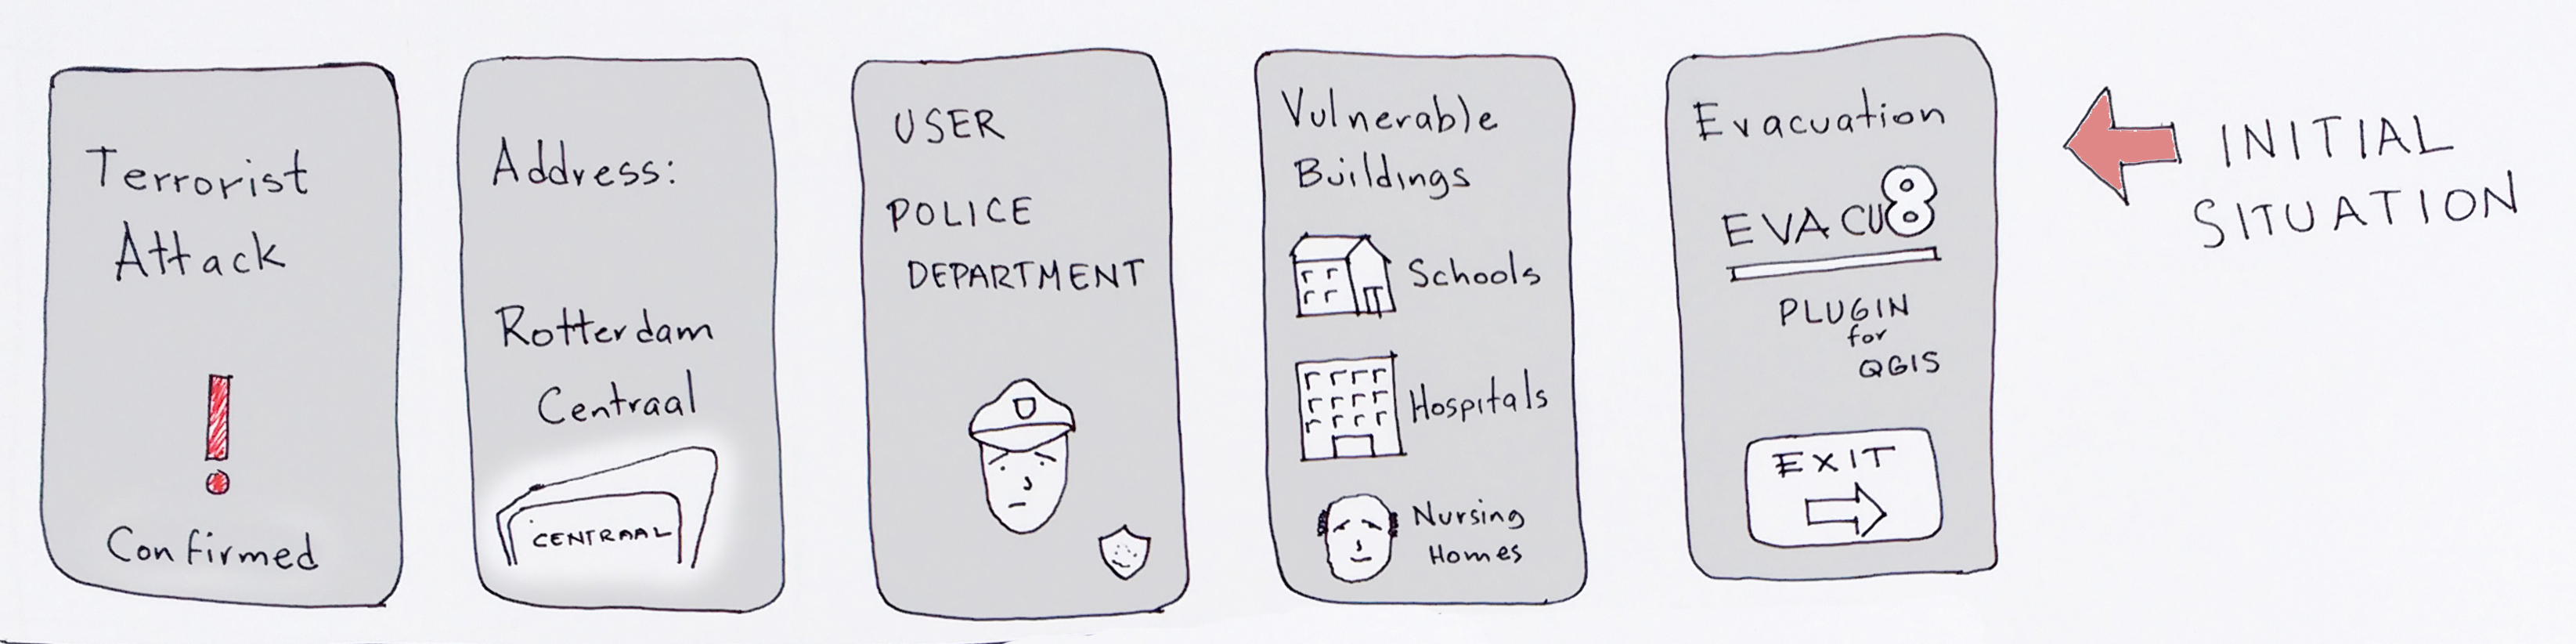 Terrorist
Attack
!
Confirmed
Address:
Rotterdam
Centraal
CENTRAAL
USER
POLICE
DEPARTMENT
Vulnerable
Buildings
Schools
Hospitals
Nursing
Homes
Evacuation
EVACU8
PLUGIN
for
QGIS
EXIT
INITIAL
SITUATION